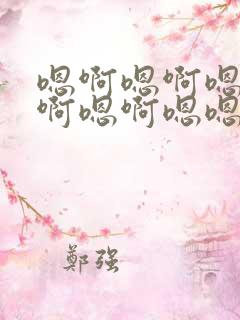 嗯啊嗯啊嗯
啊嗯啊嗯嗯
鄭强